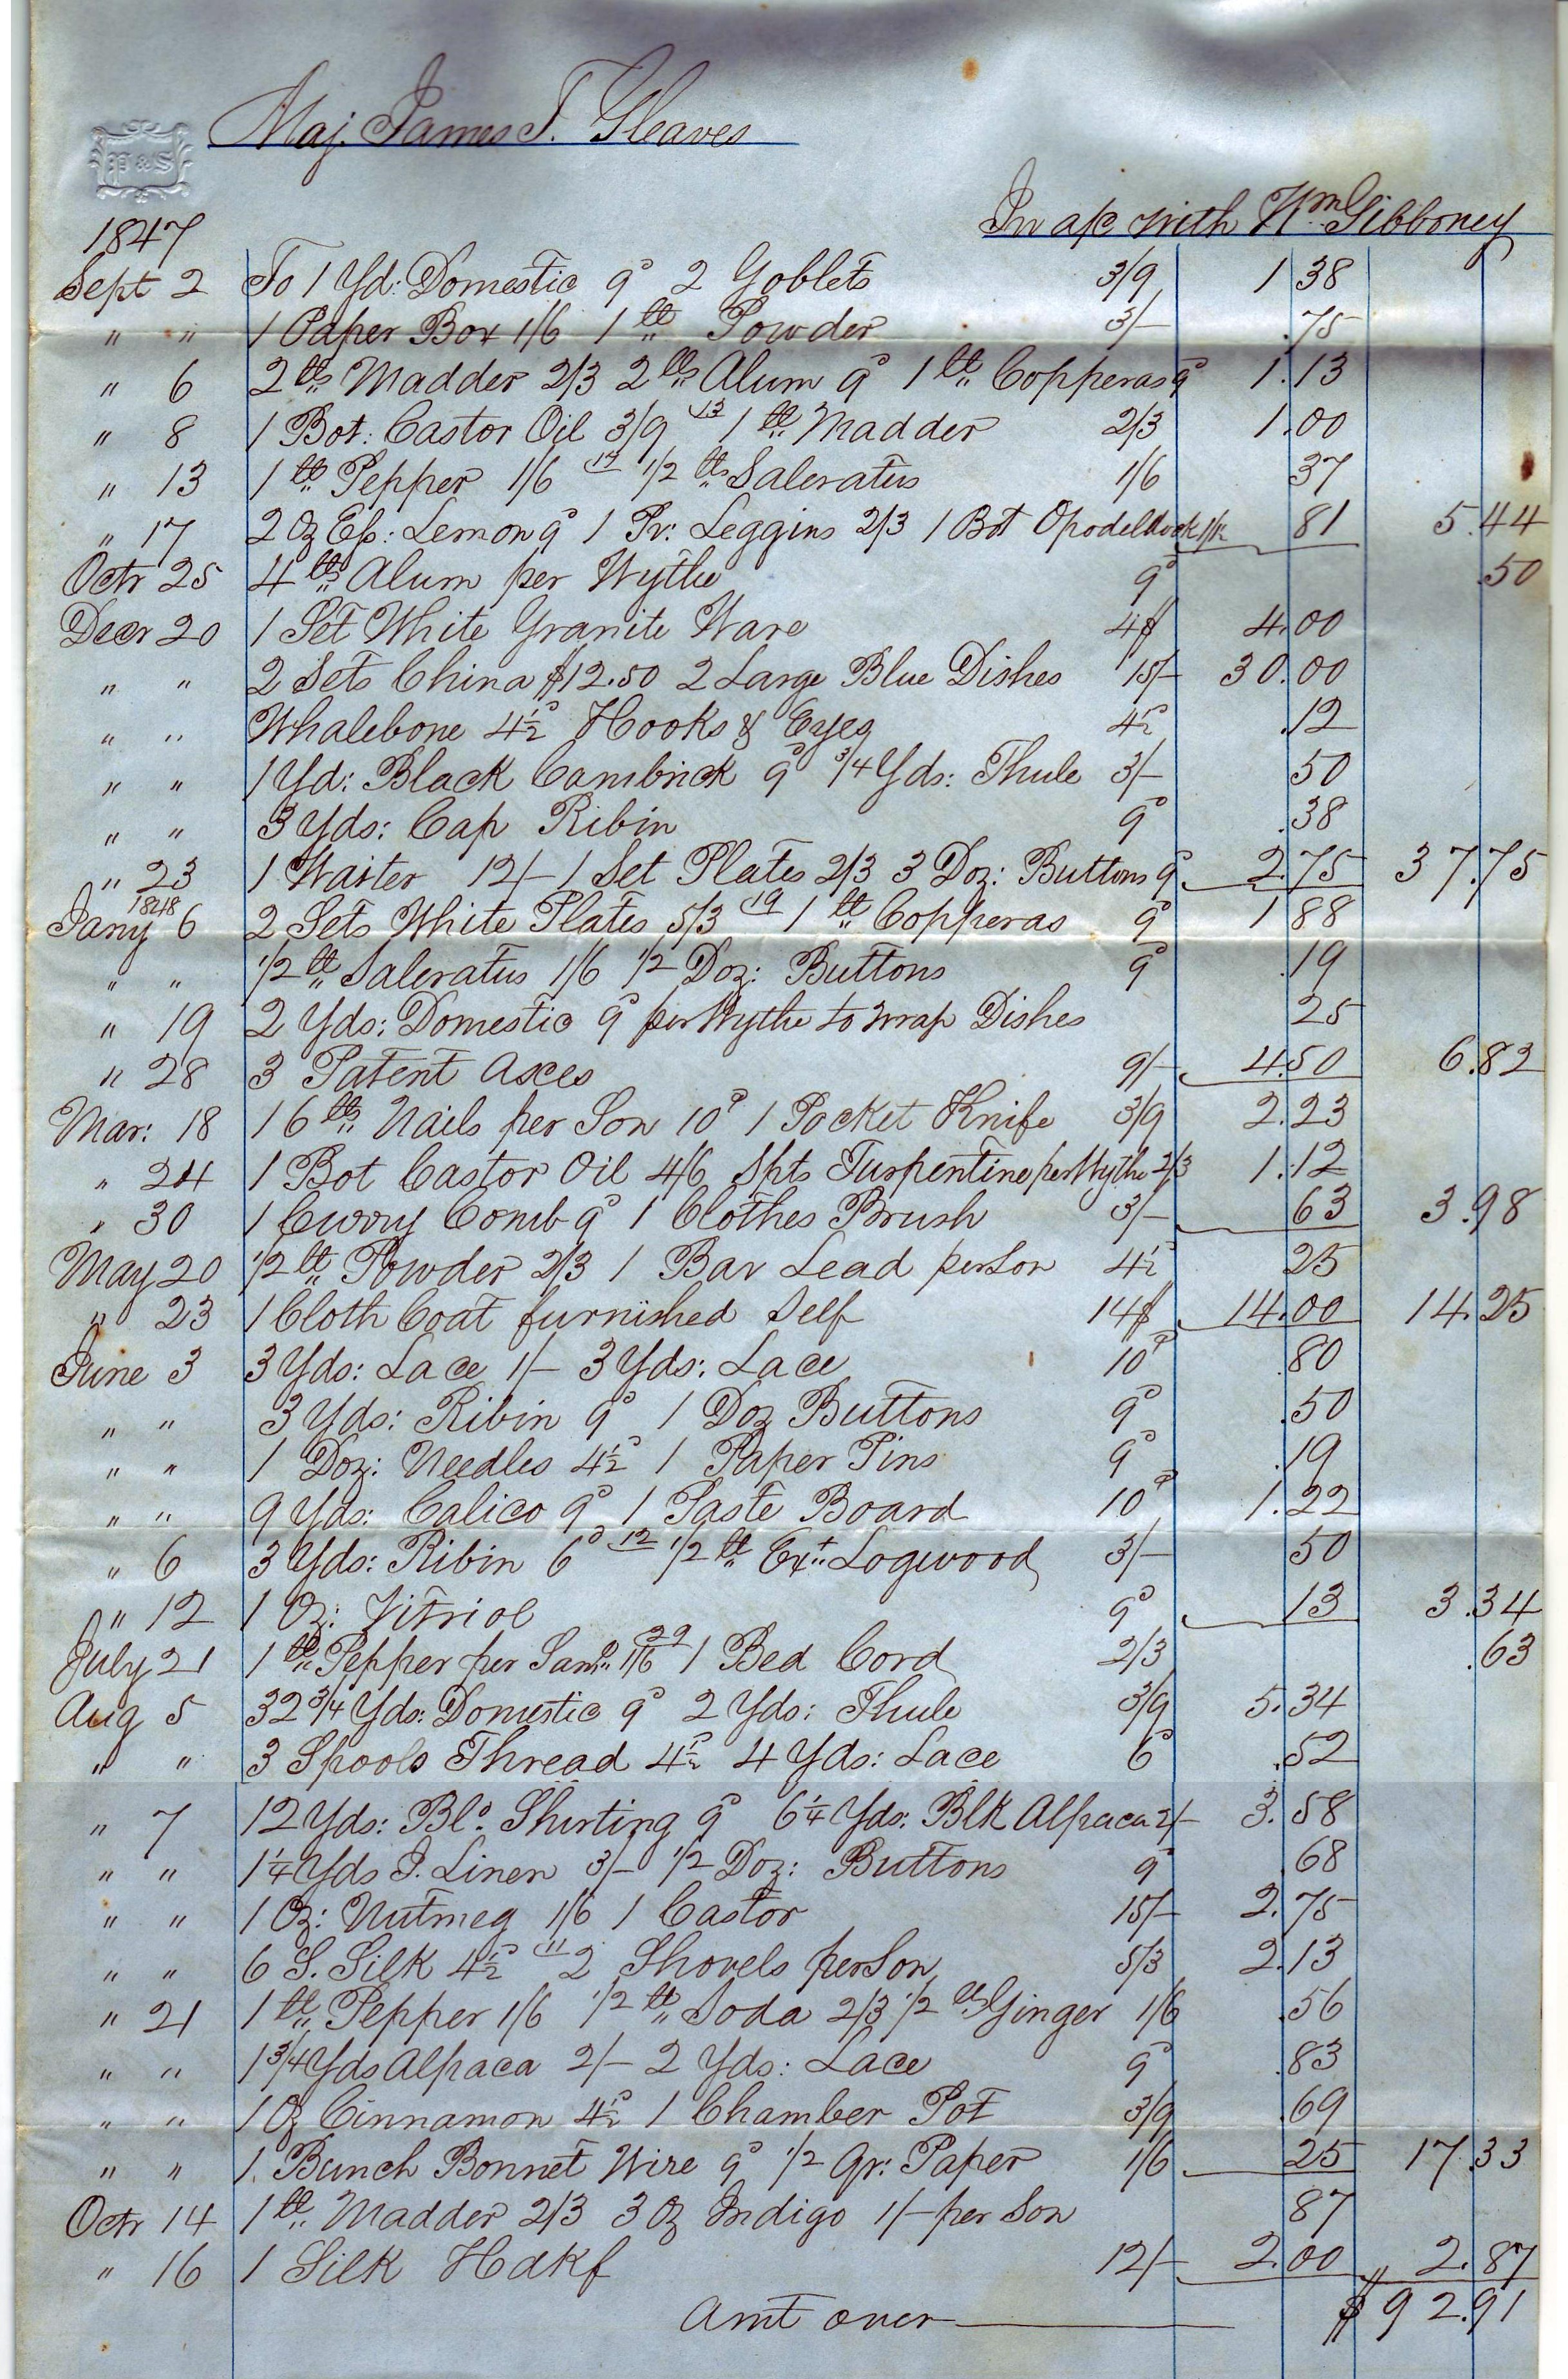 Maj. James T. Gleaves
P & S
In a/c with Wm Gibboney
1847
Sept 2 To 1 Yd: Domestic 9d 2 Goblets 3/9 1 38
" " 1 Paper Box 1/6 1 lb Powder 3/- .75
" 6 2 lbs Madder 2/3 2 lbs Alum 9d 1 lb Copperas 9d 1.13
" 8 1 Bot: Castor Oil 3/9 13 1 lb Madder 2/3 1.00
" 13 1 lb Pepper 1/6 14 1/2 lb Saleratus 1/6 37
" 17 2 Oz Ess: Lemon 9d 1 Pr: Leggins 2/3 1 Bot Opodeldock 81 5.44
Octr 25 4 lbs Alum per Wythe 9d .50
Decr 20 1 Set White Granite Ware 4$ 4.00
" " 2 Sets China $12.50 2 Large Blue Dishes 15/- 30.00
" " Whalebone 4½d Hooks & Eyes 4½d .12
" " 1 Yd: Black Cambrick 9d 3/4 Yds: Thule 3/- 50
" " 3 Yds: Cap Ribin 9d .38
" 23 1 Waiter 12/- 1 Set Plates 2/3 3 Doz: Buttons 9d 2.75 37.75
1848
Jany 6 2 Sets White Plates 5/3 19 1 lb Copperas 9d 1 88
" " 1/2 lb Saleratus 1/6 1/2 Doz: Buttons 9d .19
" 19 2 Yds: Domestic 9d per Wythe to wrap Dishes 25
" 28 3 Patent Axes 9/- 4.50 6.82
Mar: 18 16 lbs Nails per Son 10d 1 Pocket Knife 3/9 2.23
" 24 1 Bot Castor Oil 4/6 Spts Turpentine per Wythe 2/3 1.12
" 30 1 Curry Comb 9d 1 Clothes Brush 3/- 63 3.98
May 20 1/2 lb Powder 2/3 1 Bar Lead per Son 4½ 25
" 23 1 Cloth Coat furnished Self 14$ 14.00 14.25
June 3 3 Yds: Lace 1/- 3 Yds: Lace 10d .80
" " 3 Yds: Ribin 9d 1 Doz Buttons 9d .50
" " 1 Doz: Needles 4½d 1 Paper Pins 9d .19
" " 9 Yds: Calico 9d 1 Paste Board 10d 1.22
" 6 3 Yds: Ribin 6d 12 1/2 lb Ext. Logwood 3/- 50
" 12 1 Oz: Vitriol 9d 13 3.34
July 21 1 lb Pepper per Saml. 1/6 29 1 Bed Cord 2/3 .63
Aug 5 32 3/4 Yds: Domestic 9d 2 Yds: Thule 3/9 5.34
" " 3 Spools Thread 4½d 4 Yds: Lace 6d .52
" 7 12 Yds: Bld. Shirting 9d 6¼ Yds: Blk Alpaca 2/- 3.58
" " 1¼ Yds I. Linen 3/- 1/2 Doz: Buttons 9d 68
" " 1 Oz: Nutmeg 1/6 1 Castor 15/- 2.75
" " 6 S. Silk 4½d 11 2 Shovels per Son 5/3 2.13
" 21 1 lb Pepper 1/6 1/2 lb Soda 2/3 1/2 lb Ginger 1/6 .56
" " 1 3/4 Yds Alpaca 2/- 2 Yds: Lace 9d .83
" " 1 Oz Cinnamon 4½d 1 Chamber Pot 3/9 .69
" " 1 Bunch Bonnet Wire 9d 1/2 Qr: Paper 1/6 25 17.33
Octr 14 1 lb Madder 2/3 3 Oz Indigo 1/- per Son 87
" 16 1 Silk Hdkf 12/- 2.00 2.87
Amt over $92.91